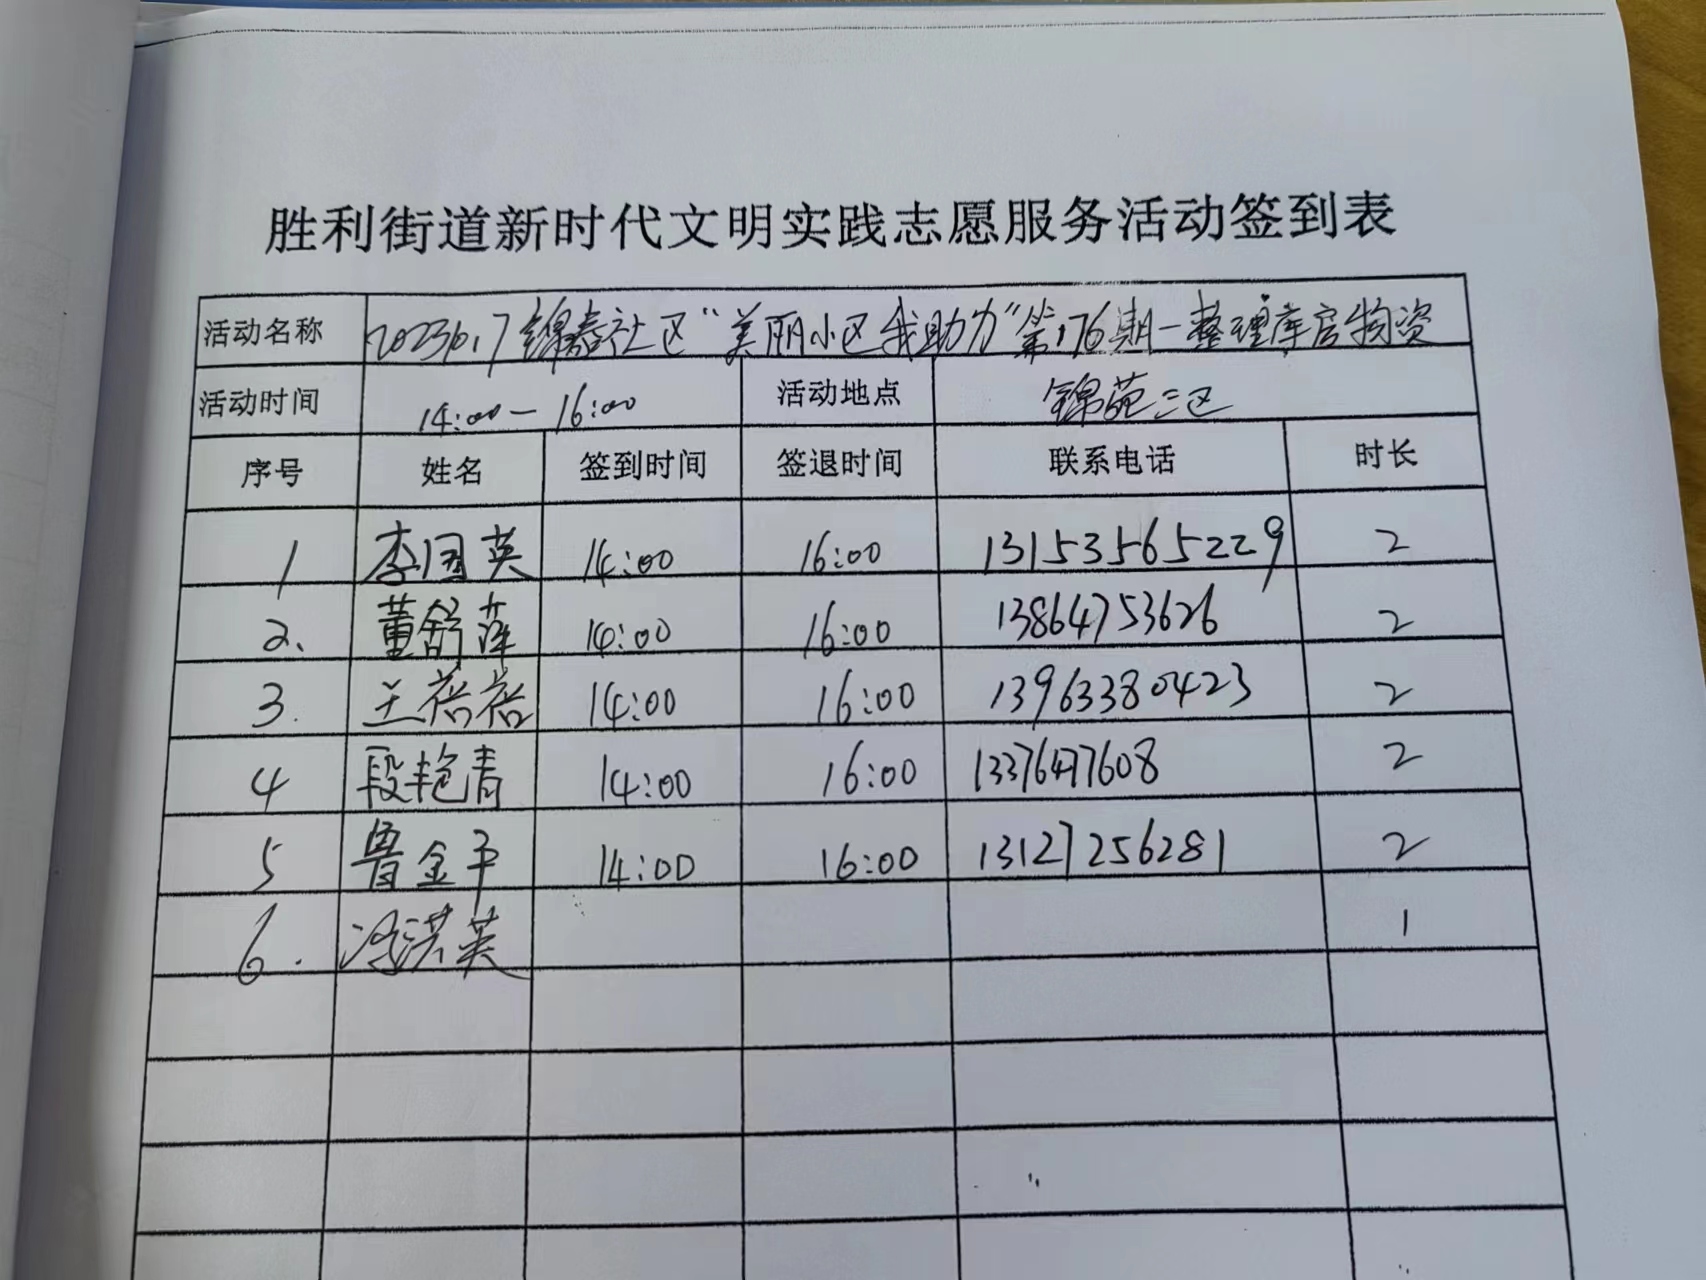 胜利街道新时代文明实践志愿服务活动签到表
活动名称 2023.6.17锦春社区“美丽小区我助力”第176期—整理库房物资
活动时间 14:00—16:00 活动地点 锦苑三区
序号 姓名 签到时间 签退时间 联系电话 时长
1 李国英 14:00 16:00 13153565229 2
2. 董舒萍 14:00 16:00 13864753626 2
3. 王蓓蓓 14:00 16:00 13963380423 2
4 段艳青 14:00 16:00 13376477608 2
5 鲁金平 14:00 16:00 13127256281 2
6. 冯洪英 1